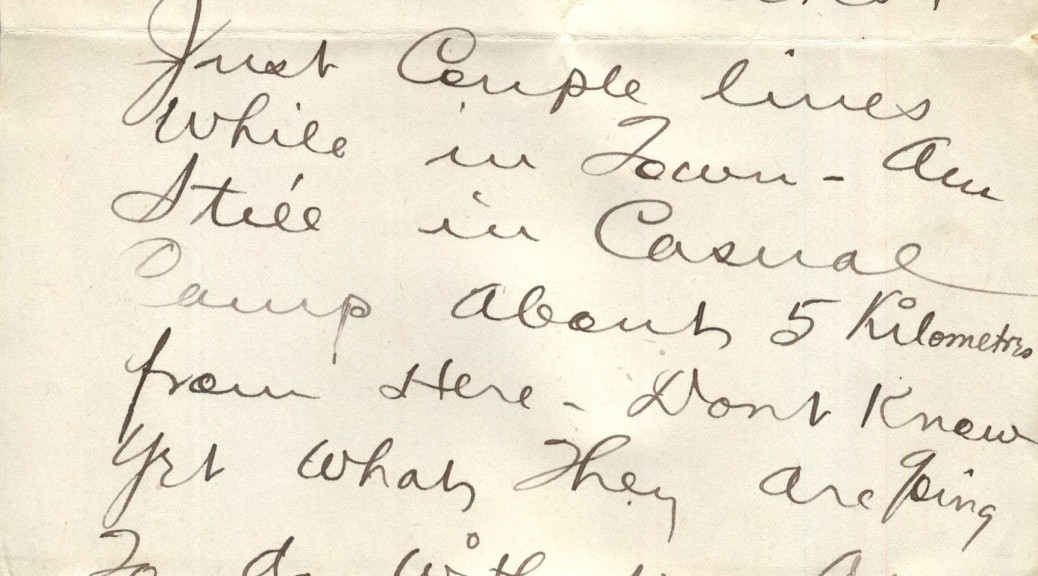 Just Couple lines
While in Town - Am
Still in Casual
Camp About 5 Kilometres
from Here - Dont Know
Yet What They Are Going
To do With